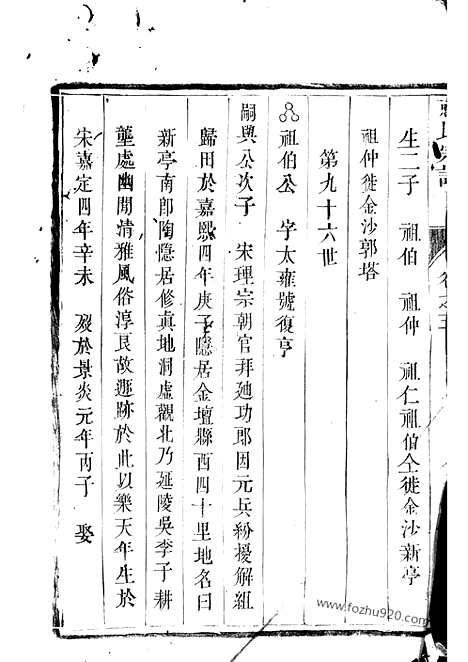 生二子 祖伯 祖仲 祖仁祖伯仝徙金沙新亭
祖仲徙金沙郭塔
第九十六世
祖伯公 字太雍號復亨
嗣興公次子 宋理宗朝官拜廸功郎因元兵紛擾解組
歸田於嘉熙四年庚子隱居金壇縣西四十里地名曰
新亭南即陶隱居修真地洞虛觀北乃延陵吳季子耕
壟處幽閒清雅風俗淳良故遯跡於此以樂天年生於
宋嘉定四年辛未 歿於景炎元年丙子 娶
www.fozhu920.com